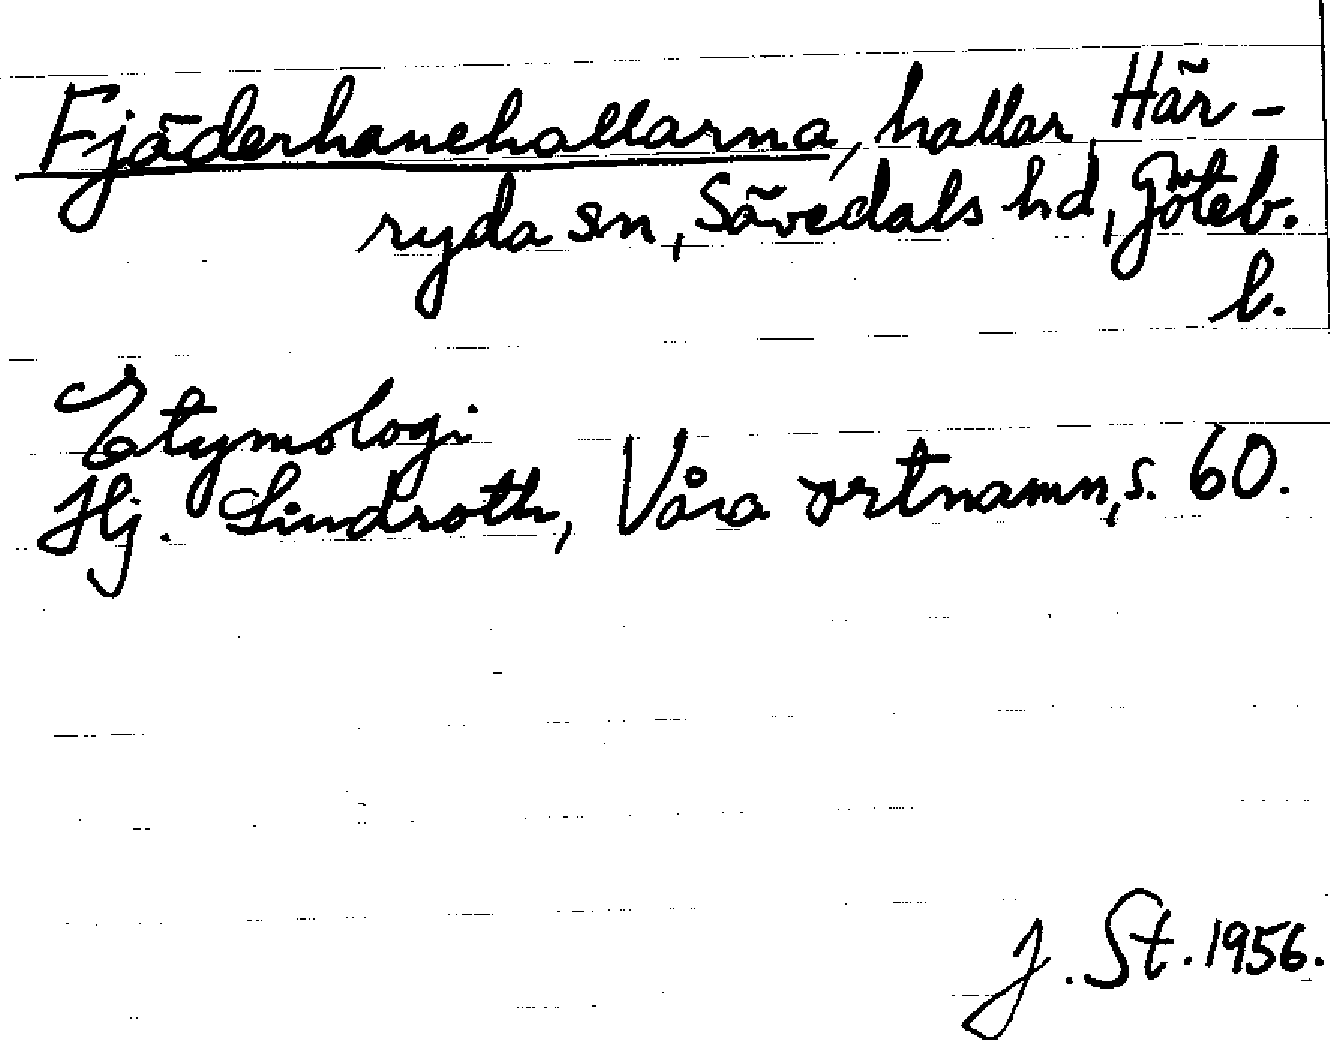 Fjäderhanehallarna, hallar, Här-
ryda sn, Sävedals hd, Göteb.
l.
Etymologi
Hj. Lindroth, Våra ortnamn, s. 60.
J. St. 1956.